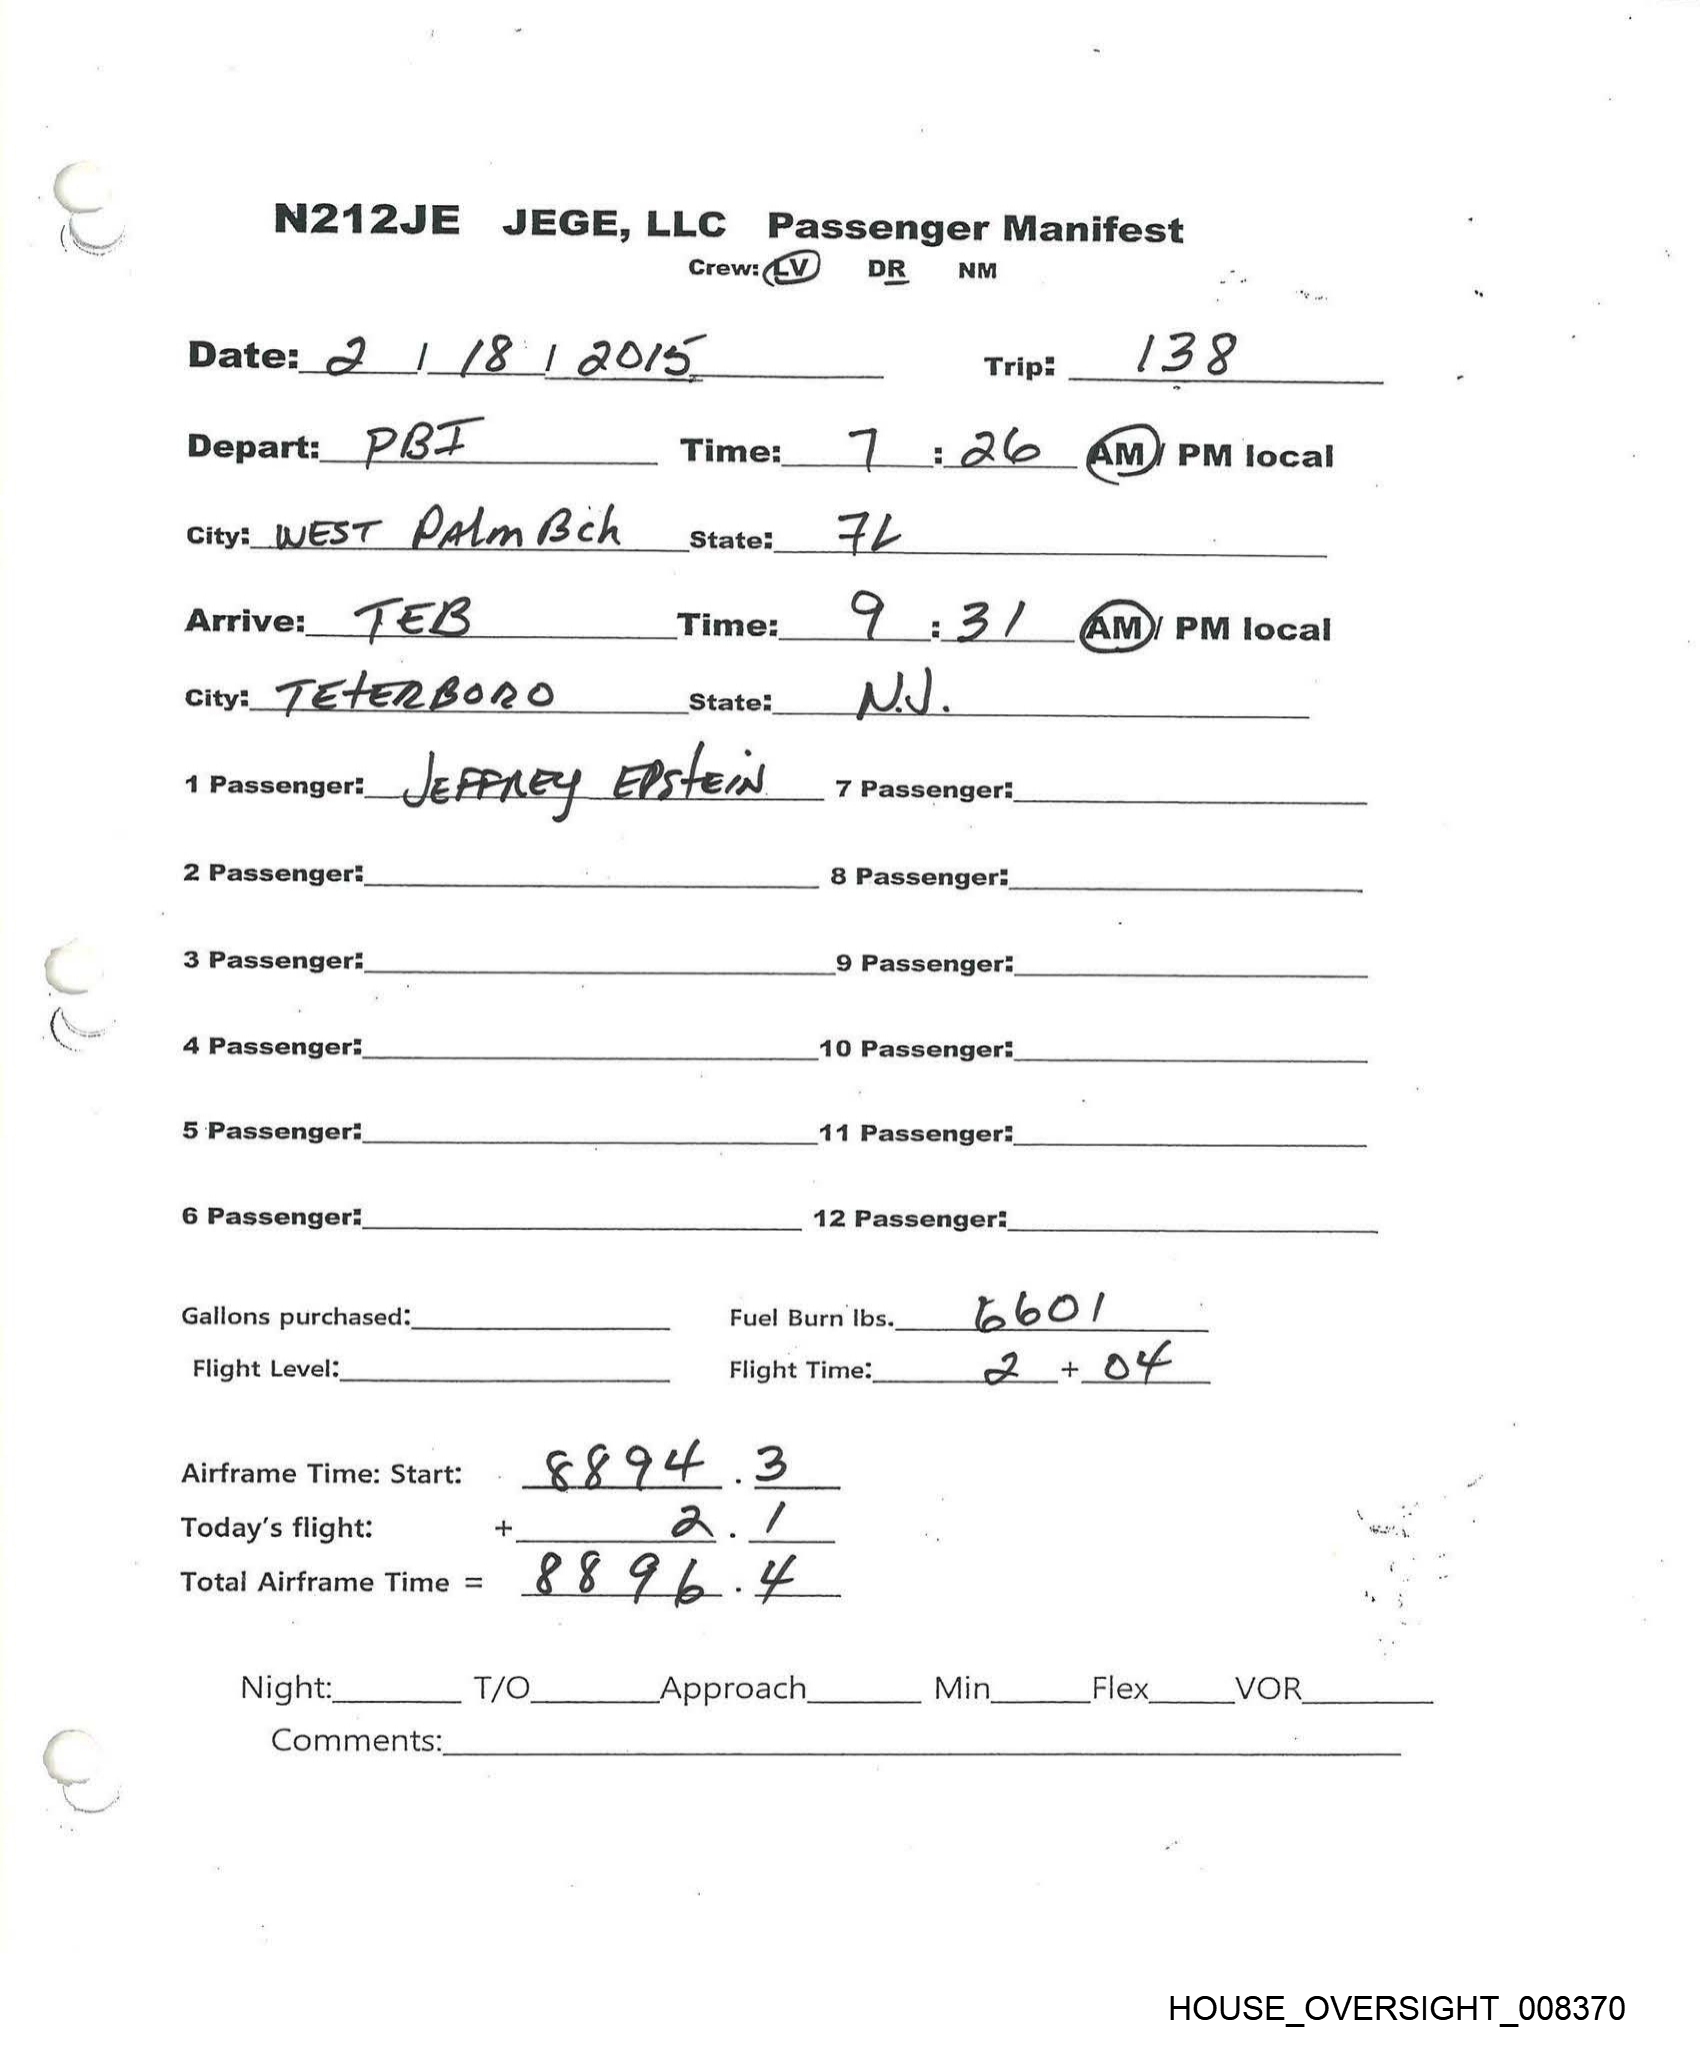 N212JE JEGE, LLC Passenger Manifest
Crew: LV DR NM
Date: 2 / 18 / 2015 Trip: 138
Depart: PBI Time: 7 : 26 AM / PM local
City: WEST PALM Bch State: FL
Arrive: TEB Time: 9 : 31 AM / PM local
City: TETERBORO State: N.J.
1 Passenger: JEFFREY EPSTEIN 7 Passenger:
2 Passenger: 8 Passenger:
3 Passenger: 9 Passenger:
4 Passenger: 10 Passenger:
5 Passenger: 11 Passenger:
6 Passenger: 12 Passenger:
Gallons purchased: Fuel Burn lbs. 6601
Flight Level: Flight Time: 2 + 04
Airframe Time: Start: 8894 . 3
Today's flight: + 2 . 1
Total Airframe Time = 8896 . 4
Night: T/O Approach Min Flex VOR
Comments:
HOUSE_OVERSIGHT_008370